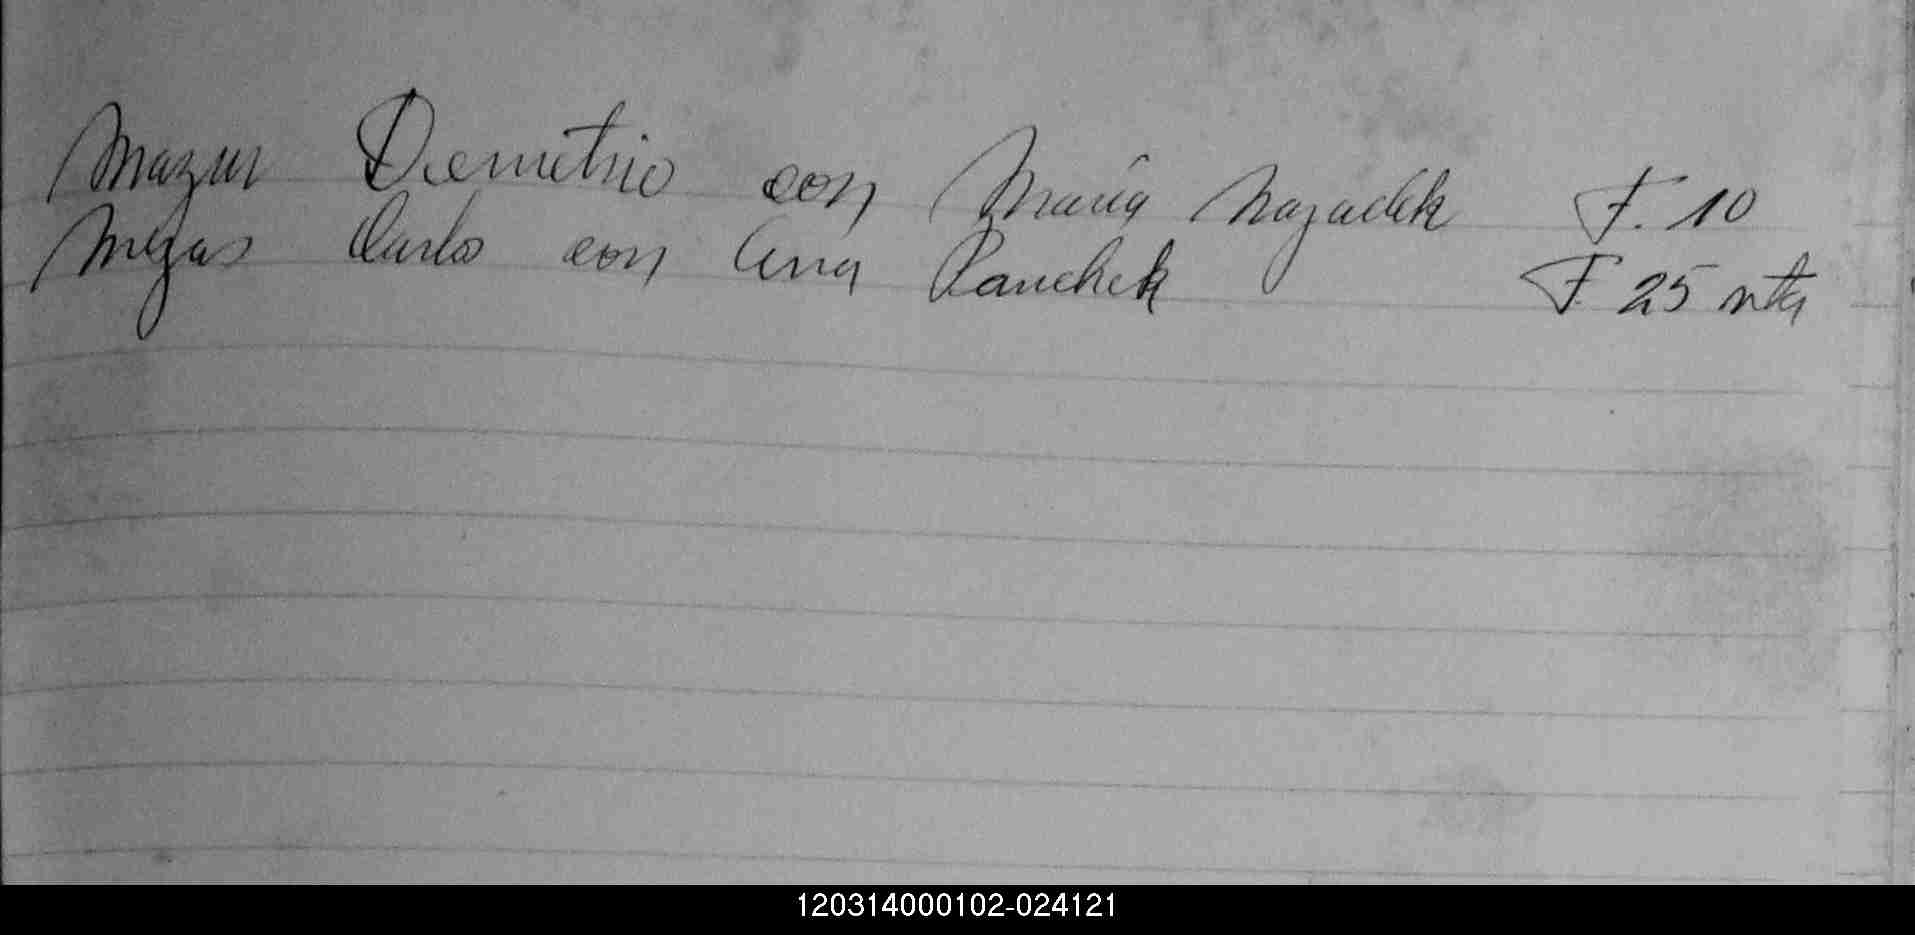 Mazur Demetrio con María Nazadek F. 10
Mezas Carlos con Ana Panchek F 25 vta
120314000102-024121